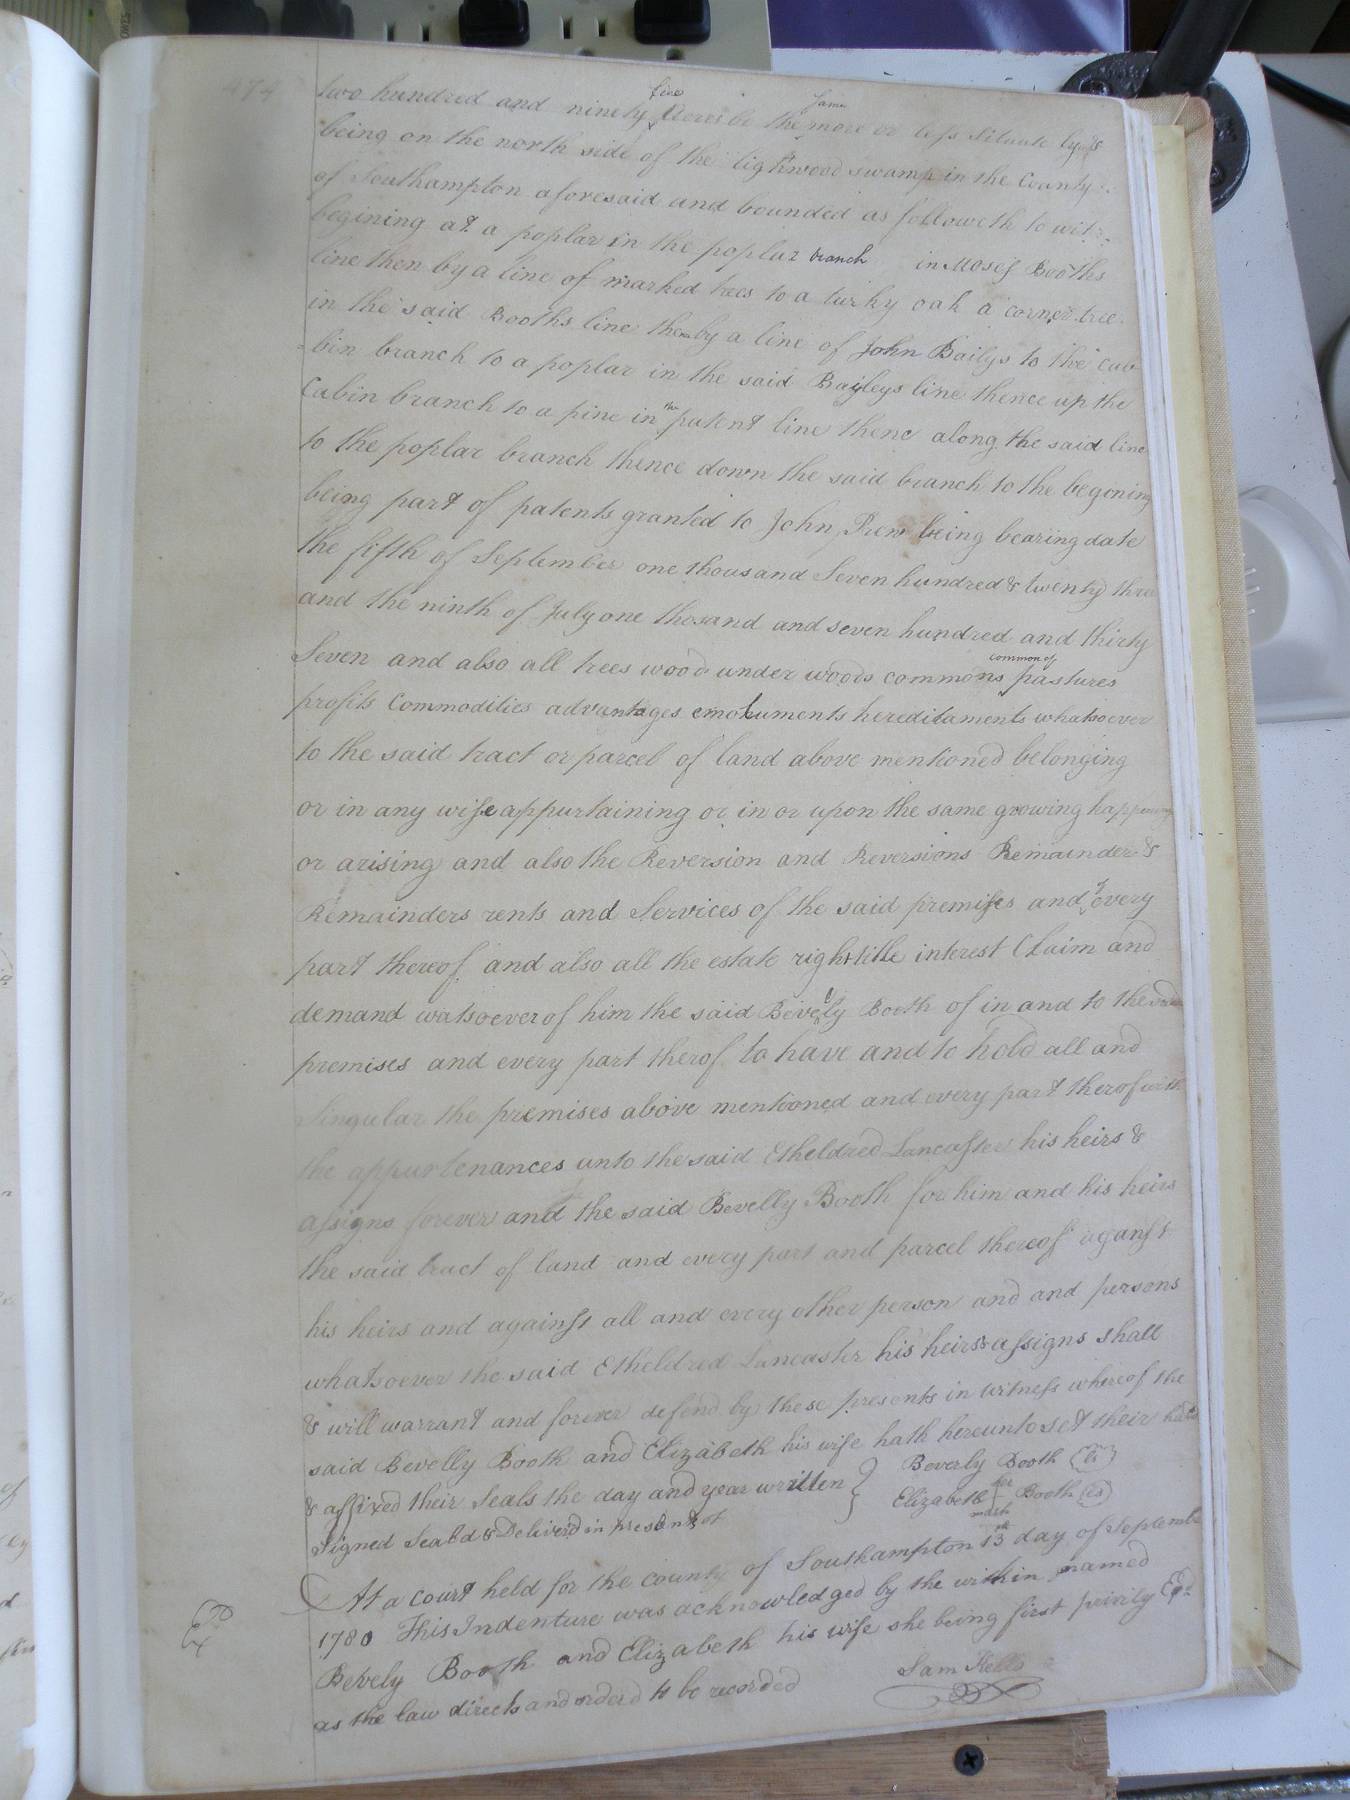 474
two hundred and ninety five Acres be the same more or less situate lying &
being on the north side of the lightwood swamp in the County
of Southampton aforesaid and bounded as followeth to wit
begining at a poplar in the poplar branch in Moses Booths
line then by a line of marked trees to a turky oak a corner tree
in the said Booths line then by a line of John Bailys to the cab
bin branch to a poplar in the said Baileys line thence up the
Cabin branch to a pine in the patent line thenc along the said line
to the poplar branch thence down the said branch to the begoning
being part of patents granted to John being bearing date
the fifth of September one thousand Seven hundred & twenty three
and the ninth of July one thosand and seven hundred and thirty
Seven and also all trees wood under woods commons common of pastures
profits Commodities advantages emoluments hereditaments whatsoever
to the said tract or parcel of land above mentioned belonging
or in any wise appurtaining or in or upon the same growing happening
or arising and also the Reversion and Reversions Remainder &
Remainders rents and Services of the said premises and of every
part thereof and also all the estate right title interest Claim and
demand watsoever of him the said Bevely Booth of in and to the said
premises and every part therof to have and to hold all and
Singular the premises above mentioned and every part therof with
the appurtenances unto the said Etheldred Lancaster his heirs &
assigns forever and the said Bevelly Booth for him and his heirs
the said tract of land and every part and parcel thereof aganst
his heirs and against all and every other person and and persons
whatsoever the said Etheldred Lancaster his heirs & assigns shall
& will warrant and forever defend by these presents in witness whereof the
said Bevelly Booth and Elizabeth his wife hath hereunto set their hands
& affixed their Seals the day and year written } Beverly Booth (LS)
Signed Seald & Deliverd in presents of Elizabeth her mark Booth (LS)
At a court held for the county of Southampton 13th day of September
1780 This Indenture was acknowledged by the within named
Bevely Booth and Elizabeth his wife she being first privily Ex
as the law directs and orderd to be recorded
Sam Kello
Exd